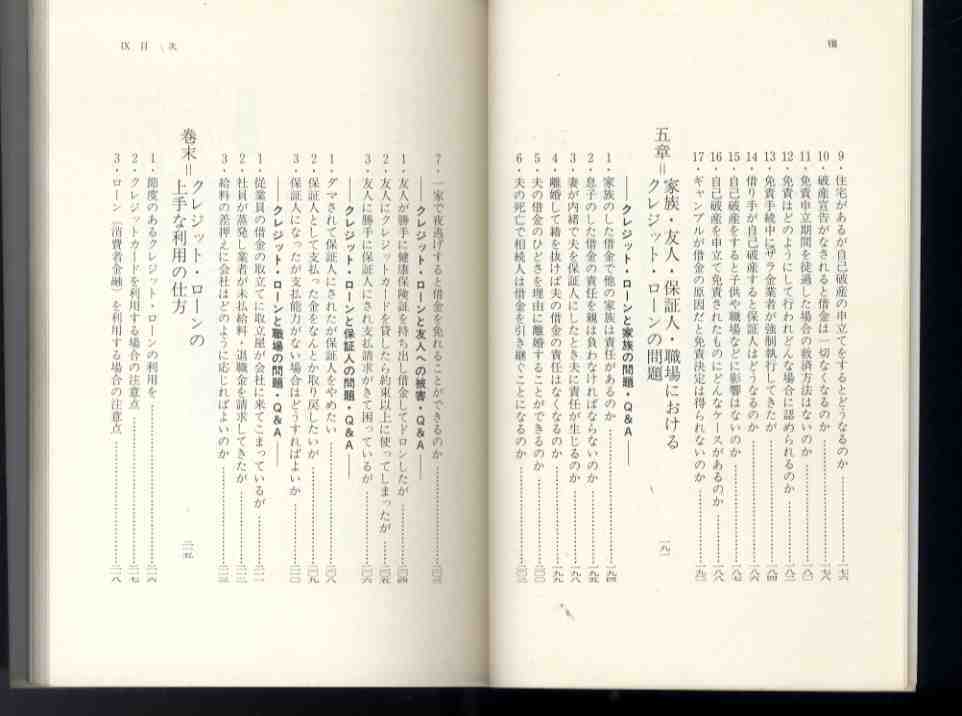 viii
9・住宅があるが自己破産の申立てをするとどうなるのか……一七六
10・破産宣告がなされると借金は一切なくなるのか……一七八
11・免責申立期間を徒過した場合の救済方法はないのか……一八〇
12・免責はどのようにして行われどんな場合に認められるのか……一八二
13・免責手続中にサラ金業者が強制執行してきたが……一八四
14・借り手が自己破産すると保証人はどうなるのか……一八六
15・自己破産をすると子供や職場などに影響はないのか……一八七
16・自己破産を申立て免責されたものにどんなケースがあるのか……一八八
17・ギャンブルが借金の原因だと免責決定は得られないのか……一九〇
五章＝家族・友人・保証人・職場における
クレジット・ローンの問題 一九一
――クレジット・ローンと家族の問題・Q&A――
1・家族のした借金で他の家族は責任があるのか……一九四
2・息子のした借金の責任を親は負わなければならないのか……一九五
3・妻が内緒で夫を保証人にしたとき夫に責任が生じるのか……一九八
4・離婚して籍を抜けば夫の借金の責任はなくなるのか……一九九
5・夫の借金のひどさを理由に離婚することができるのか……二〇〇
6・夫の死亡で相続人は借金を引き継ぐことになるのか……二〇二
IX 目 次
7・一家で夜逃げすると借金を免れることができるのか……二〇三
――クレジット・ローンと友人への被害・Q&A――
1・友人が勝手に健康保険証を持ち出し借金してドロンしたが……二〇四
2・友人にクレジットカードを貸したら約束以上に使ってしまったが……二〇五
3・友人に勝手に保証人にされ支払請求がきて困っているが……二〇六
――クレジット・ローンと保証人の問題・Q&A――
1・ダマされて保証人にされたが保証人をやめたい……二〇八
2・保証人として支払った金をなんとか取り戻したいが……二〇九
3・保証人になったが支払能力がない場合はどうすればよいか……二一〇
――クレジット・ローンと職場の問題・Q&A――
1・従業員の借金の取立てに取立屋が会社に来てこまっているが……二一一
2・社員が蒸発し業者が未払給料・退職金を請求してきたが……二一二
3・給料の差押えに会社はどのように応じればよいのか……二一三
巻末＝クレジット・ローンの
上手な利用の仕方 二一五
1・節度のあるクレジット・ローンの利用を……二一六
2・クレジットカードを利用する場合の注意点……二一七
3・ローン（消費者金融）を利用する場合の注意点……二一八